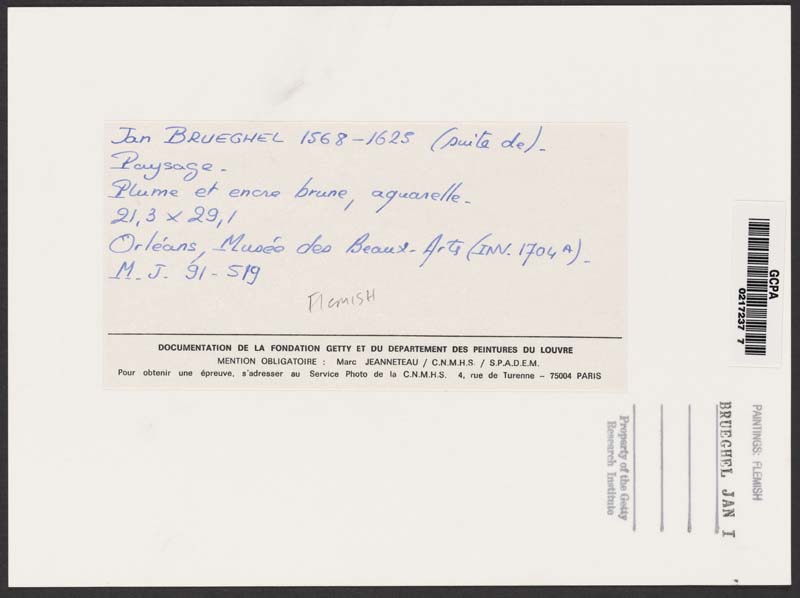 Jan BRUEGHEL 1568-1625 (suite de)-
Paysage-
Plume et encre brune, aquarelle-
21,3 x 29,1
Orléans, Musée des Beaux-Arts (INV. 1704A)-
M.J. 91-519
FLEMISH
DOCUMENTATION DE LA FONDATION GETTY ET DU DEPARTEMENT DES PEINTURES DU LOUVRE
MENTION OBLIGATOIRE : Marc JEANNETEAU / C.N.M.H.S. / S.P.A.D.E.M.
Pour obtenir une épreuve, s'adresser au Service Photo de la C.N.M.H.S. 4, rue de Turenne – 75004 PARIS
GCPA
0217237 7
PAINTINGS: FLEMISH
BRUEGHEL JAN I
Property of the Getty
Research Institute